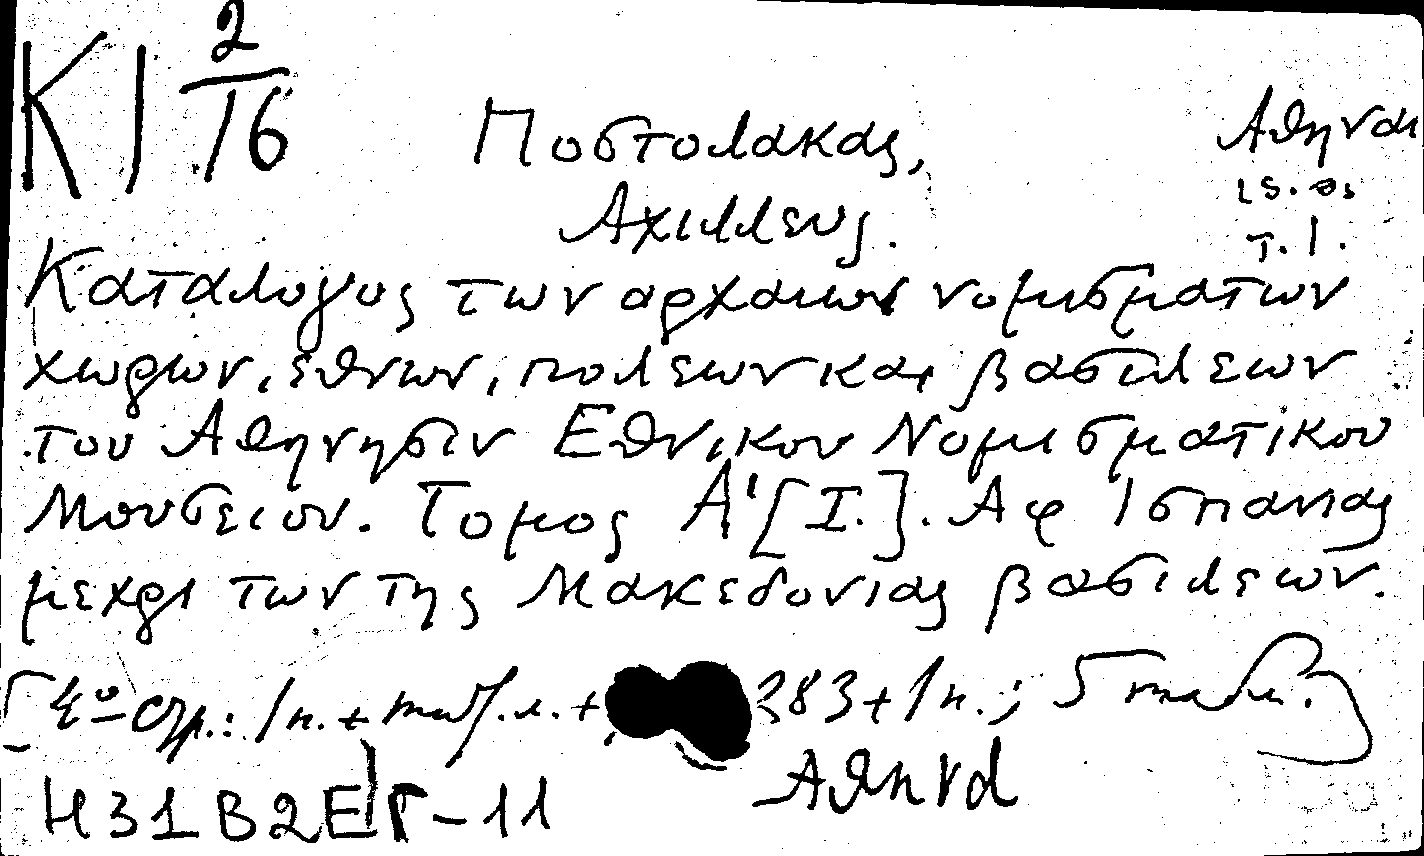 К I 2/16
Ποστολακας,
Αχιλλευς.
Αθηναι
τ. 1.
Καταλογος των αρχαιων νομισματων
χωρων, εθνων, πολεων και βασιλεων
του Αθηνησιν Εθνικου Νομισματικου
Μουσειου. Τομος Α' [I.]. Αφ Ισπανιας
μεχρι των της Μακεδονιας βασιλεων.
[4º стр.: 1 п. + тит. л. + 283 + 1 п.; 5 табл.]
Н31В2ЕГ-11